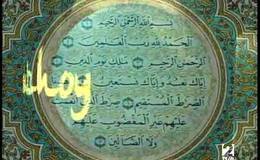 بسم الله الرحمن الرحيم
الحمد لله رب العلمين
الرحمن الرحيم ملك يوم الدين
اياك نعبد و اياك نستعين
اهدنا الصرط المستقيم صرط الذين انعمت
عليهم غير المغضوب عليهم
ولا الضالين
hoy
2